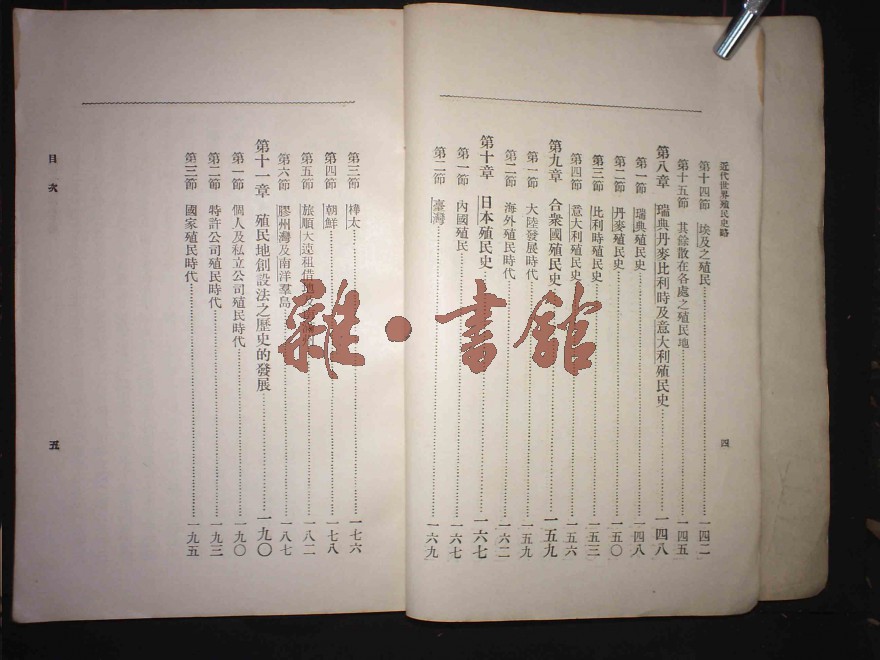 近代世界殖民史略
第十四節 埃及之殖民……一四二
第十五節 其餘散在各處之殖民地……一四五
第八章 瑞典丹麥比利時及意大利殖民史……一四八
第一節 瑞典殖民史……一四八
第二節 丹麥殖民史……一五〇
第三節 比利時殖民史……一五三
第四節 意大利殖民史……一五六
第九章 合衆國殖民史……一五九
第一節 大陸發展時代……一五九
第二節 海外殖民時代……一六二
第十章 日本殖民史……一六七
第一節 內國殖民……一六七
第二節 臺灣……一六九
四
第三節 樺太……一七六
第四節 朝鮮……一七八
第五節 旅順大連租借地……一八二
第六節 膠州灣及南洋羣島……一八七
第十一章 殖民地創設法之歷史的發展……一九〇
第一節 個人及私立公司殖民時代……一九〇
第二節 特許公司殖民時代……一九三
第三節 國家殖民時代……一九五
目次
五
雜·書館